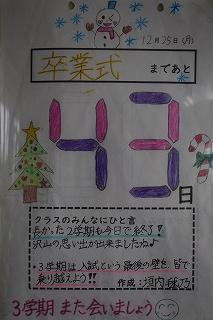 12月25日(月)
卒業式
まであと
43
日
クラスのみんなにひと言
長かった2学期も今日で終了!
沢山の思い出が出来ましたね♪
・3学期は入試という最後の壁を皆で
乗り越えよう!!
作成:
3学期 また会いましょう